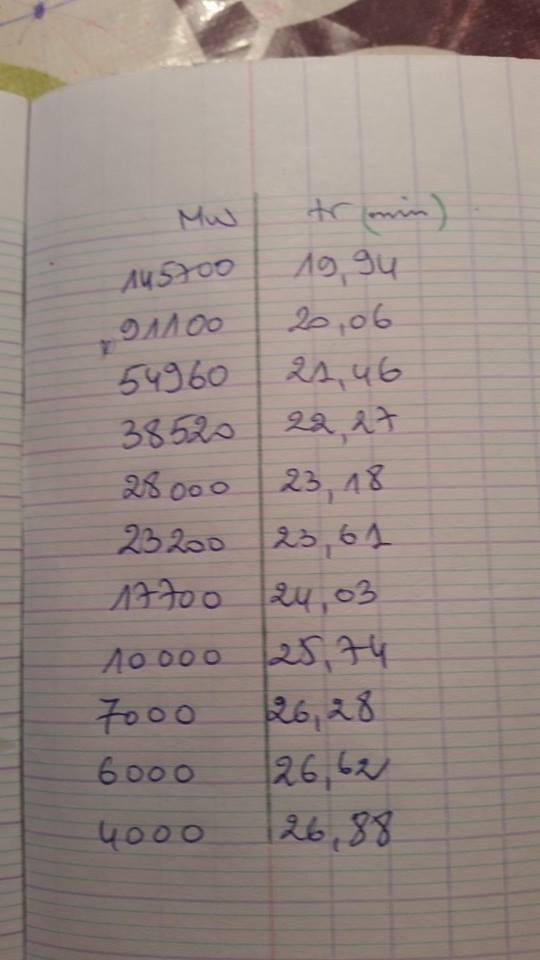 Mw tr (min)
145700 19,94
91100 20,06
54960 21,46
38520 22,27
28000 23,18
23200 23,61
17700 24,03
10000 25,74
7000 26,28
6000 26,62
4000 26,88